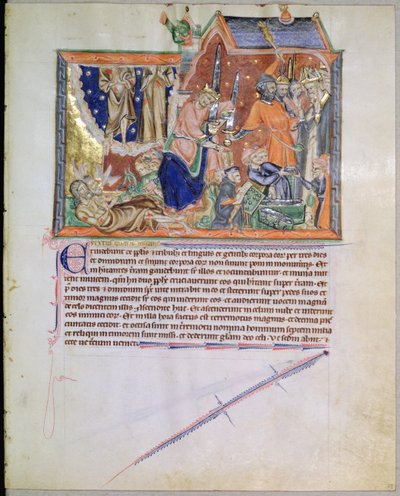 Et videbunt de pplis & tribub; & linguis & gentib; corpora eor per tres dies
et dimidium et super corpora eor non sinunt poni in monumtis. Et in
habitantes terram gaudebunt sup illos et iocundabuntur et mun͞a mit
tent invicem. qm hii duo pphe cruciaverunt eos qui hitant super terram. Et
p9 dies tres & dimidium sps vite intravit in eos et steterunt super pedes suos et ti
mor magnus cecidit sr eos qui viderunt eos et audierunt vocem magnā
de celo dicentem illis ascendite huc. Et ascenderunt in celum in nube et viderunt
eos inimici eor. Et in illa hora factus est terremotus magnus et decima pars
civitatis cecidit. et occisa sunt in terremotu nomina hominum septem milia
et reliqui in timorem sunt missi et dederunt gl͞am deo celi. Ve scdm abiit &
ecce ve tercium veniet.